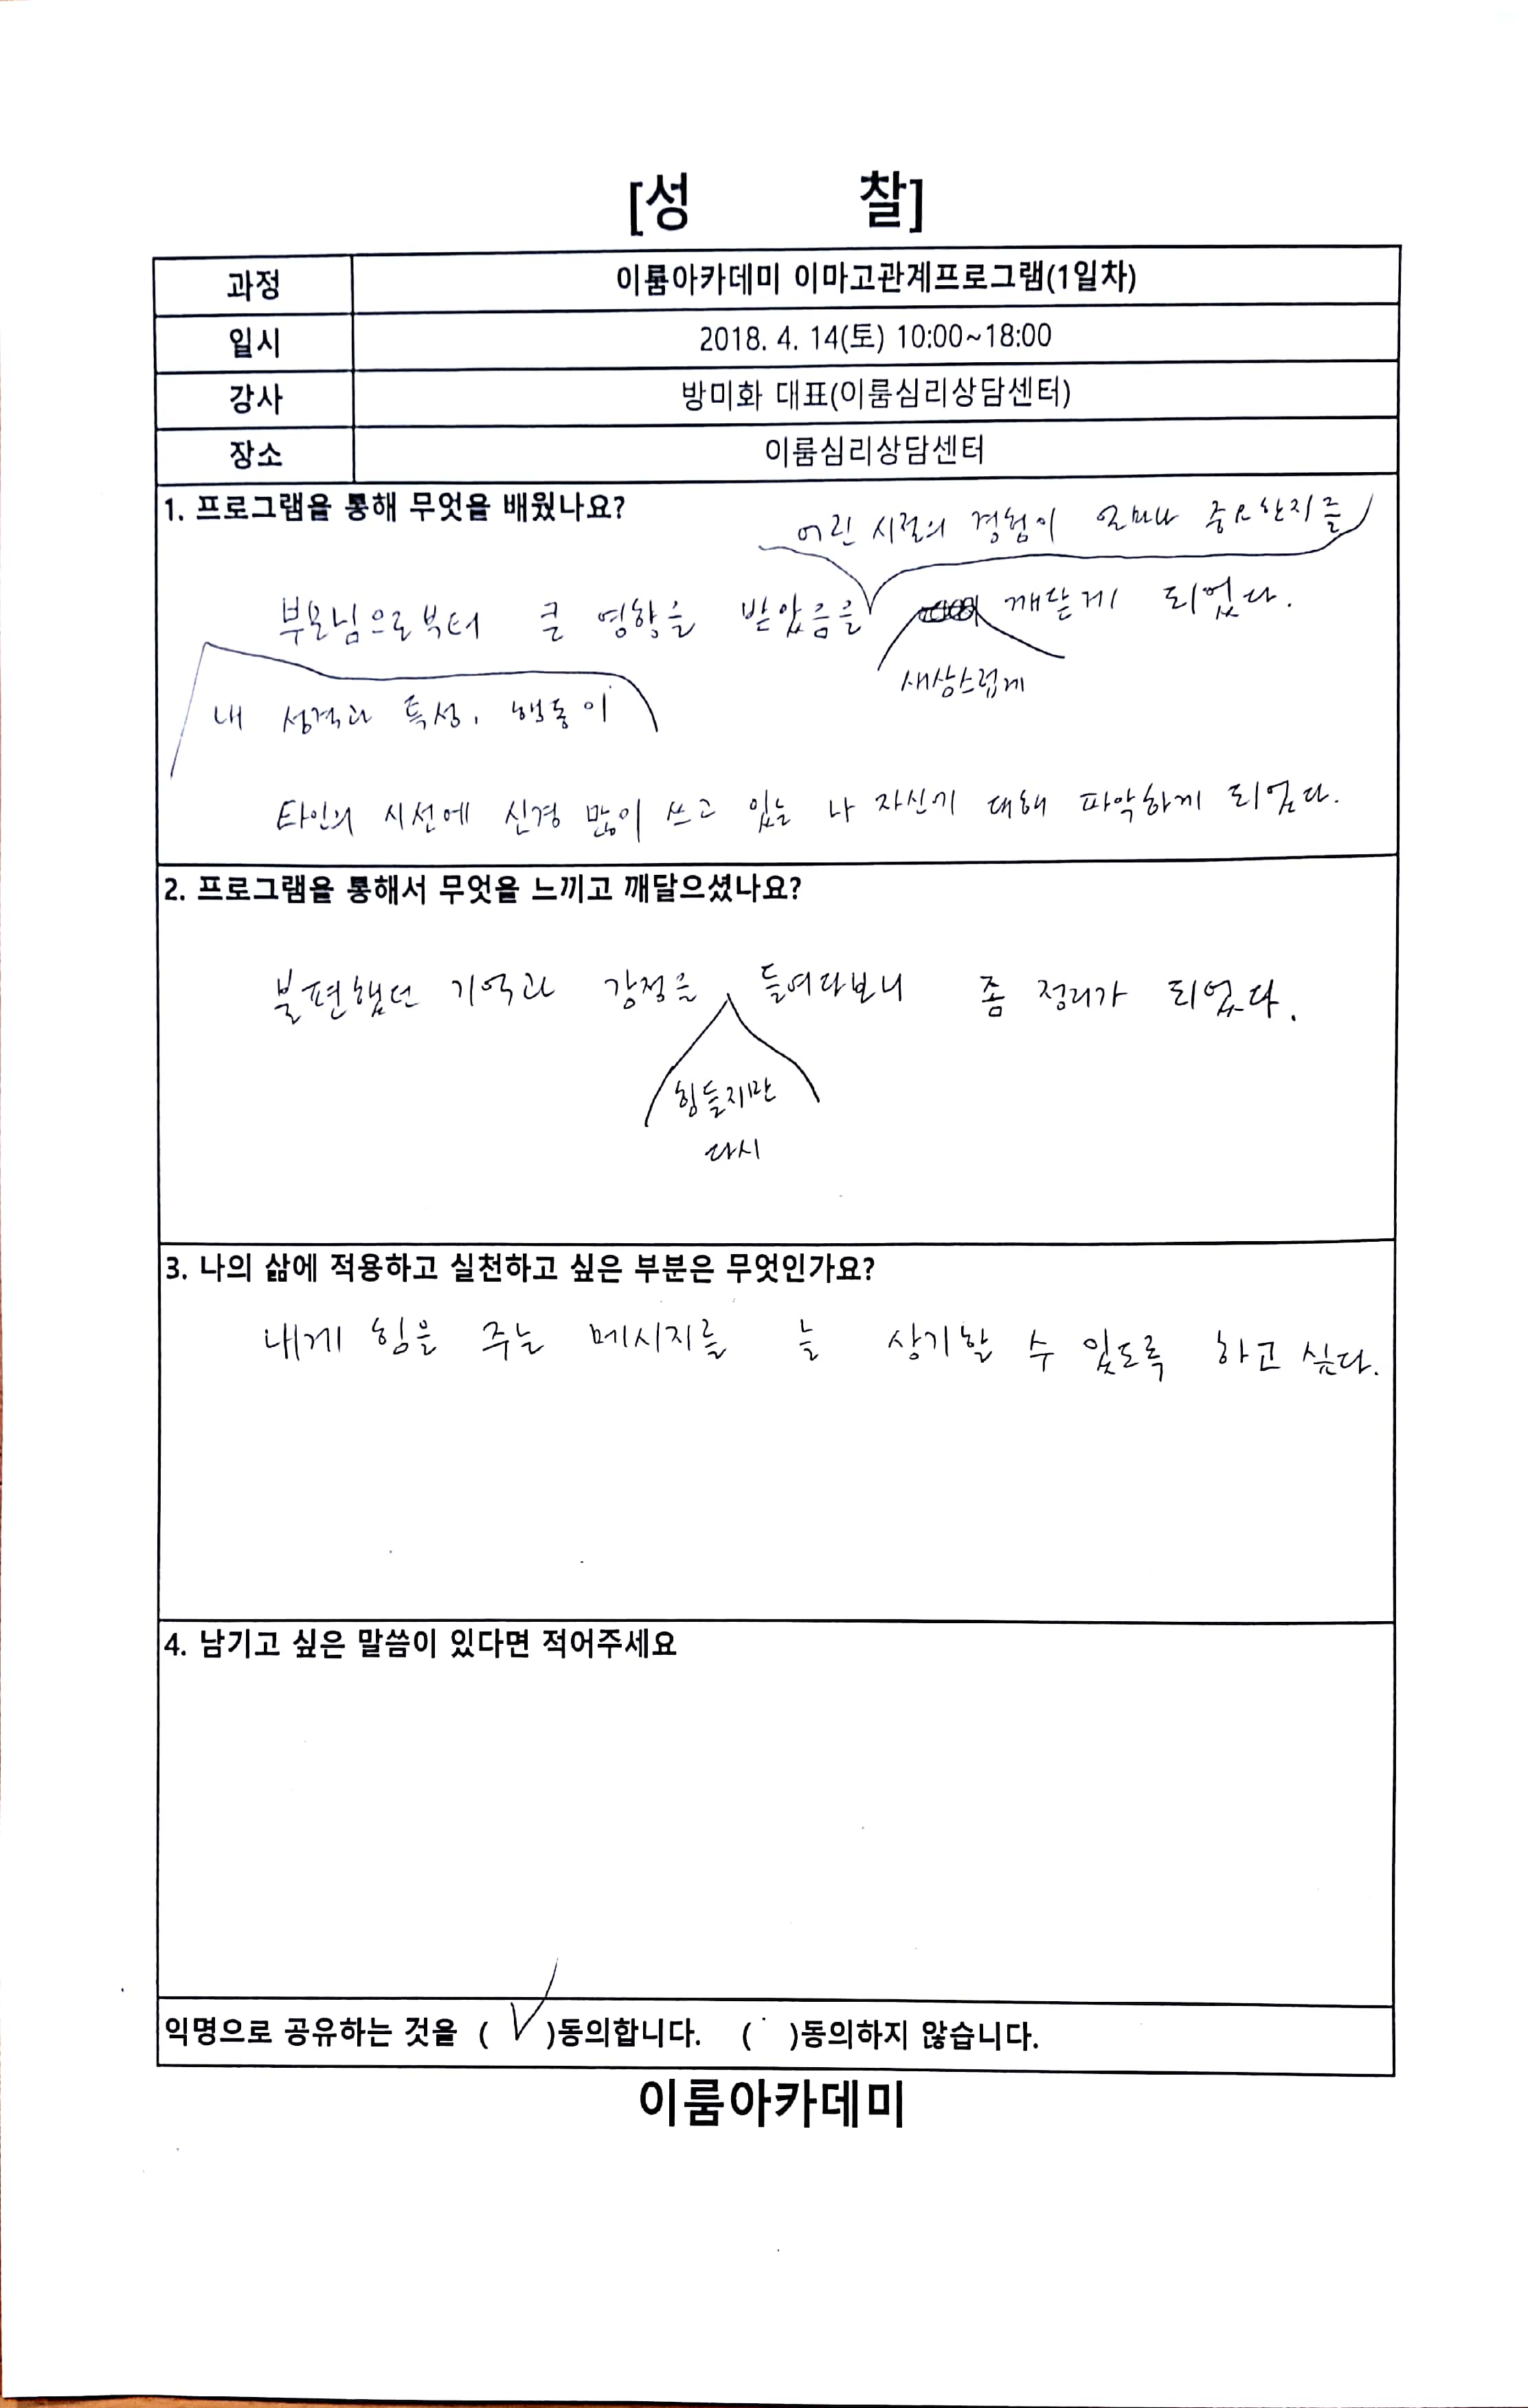 [성 찰]
과정 이룸아카데미 이마고관계프로그램(1일차)
일시 2018. 4. 14(토) 10:00~18:00
강사 방미화 대표(이룸심리상담센터)
장소 이룸심리상담센터
1. 프로그램을 통해 무엇을 배웠나요?
어린 시절의 경험이 얼마나 중요한지를
부모님으로부터 큰 영향을 받았음을 깨닫게 되었다.
새삼스럽게
내 성격과 특성, 행동이
타인의 시선에 신경 많이 쓰고 있는 나 자신에 대해 파악하게 되었다.
2. 프로그램을 통해서 무엇을 느끼고 깨달으셨나요?
불편했던 기억과 감정을 들여다보니 좀 정리가 되었다.
힘들지만
다시
3. 나의 삶에 적용하고 실천하고 싶은 부분은 무엇인가요?
내게 힘을 주는 메시지를 늘 상기할 수 있도록 하고 싶다.
4. 남기고 싶은 말씀이 있다면 적어주세요
익명으로 공유하는 것을 ( V )동의합니다. ( )동의하지 않습니다.
이룸아카데미